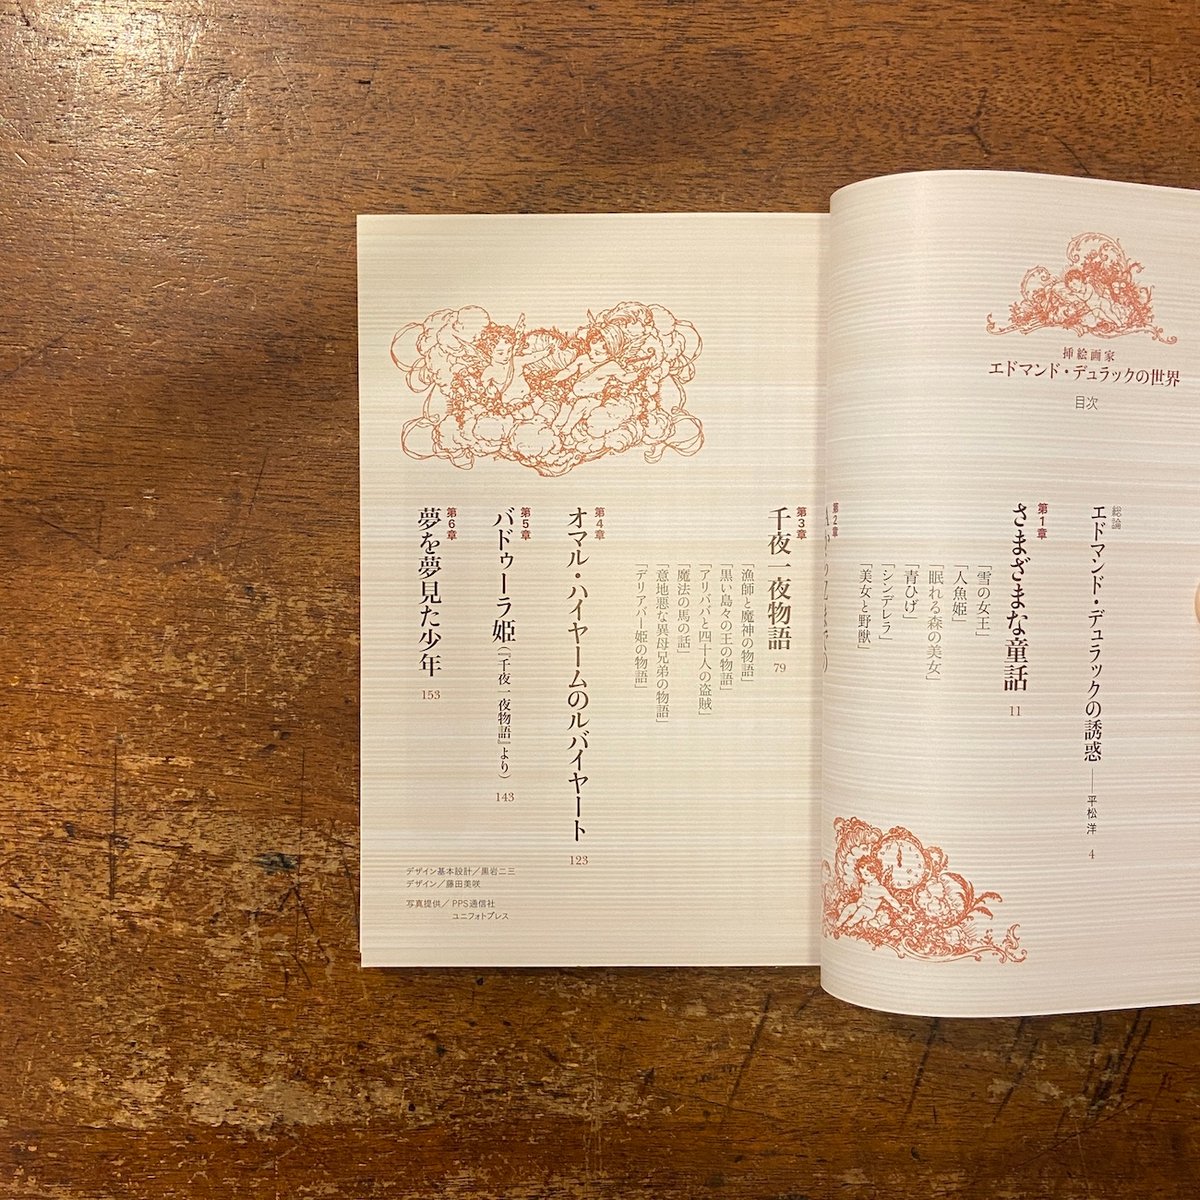 挿絵画家
エドマンド・デュラックの世界
目次
総論
エドマンド・デュラックの誘惑——平松 洋 4
第1章
さまざまな童話 11
「雪の女王」
「人魚姫」
「眠れる森の美女」
「青ひげ」
「シンデレラ」
「美女と野獣」
第2章
第3章
千夜一夜物語 79
「漁師と魔神の物語」
「黒い島々の王の物語」
「アリババと四十人の盗賊」
「魔法の馬の話」
「意地悪な異母兄弟の物語」
「デリアバー姫の物語」
第4章
オマル・ハイヤームのルバイヤート 123
第5章
バドゥーラ姫(『千夜一夜物語』より) 143
第6章
夢を夢見た少年 153
デザイン基本設計／黒岩二三
デザイン／藤田美咲
写真提供／PPS通信社
ユニフォトプレス